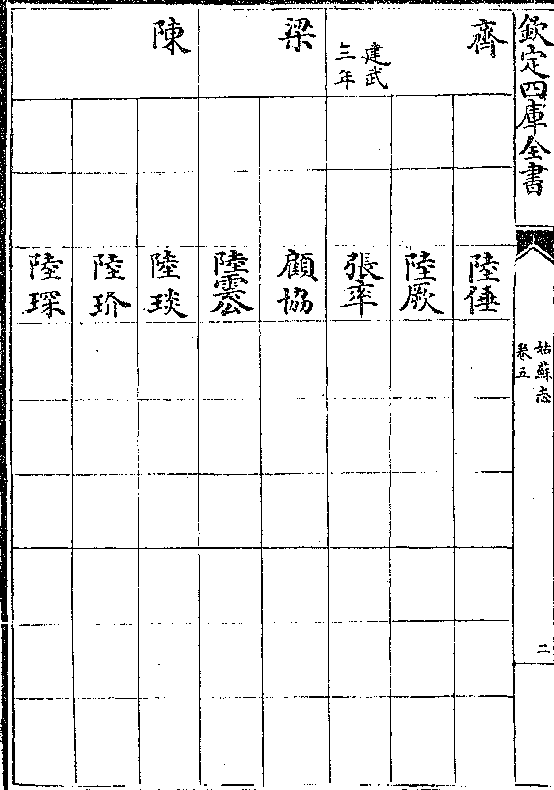 欽定四庫全書
姑蘇志
卷五
二
齊
陸倕
陸厥
建武
三年
張率
梁
顧協
陸雲公
陳
陸琰
陸玠
陸琛